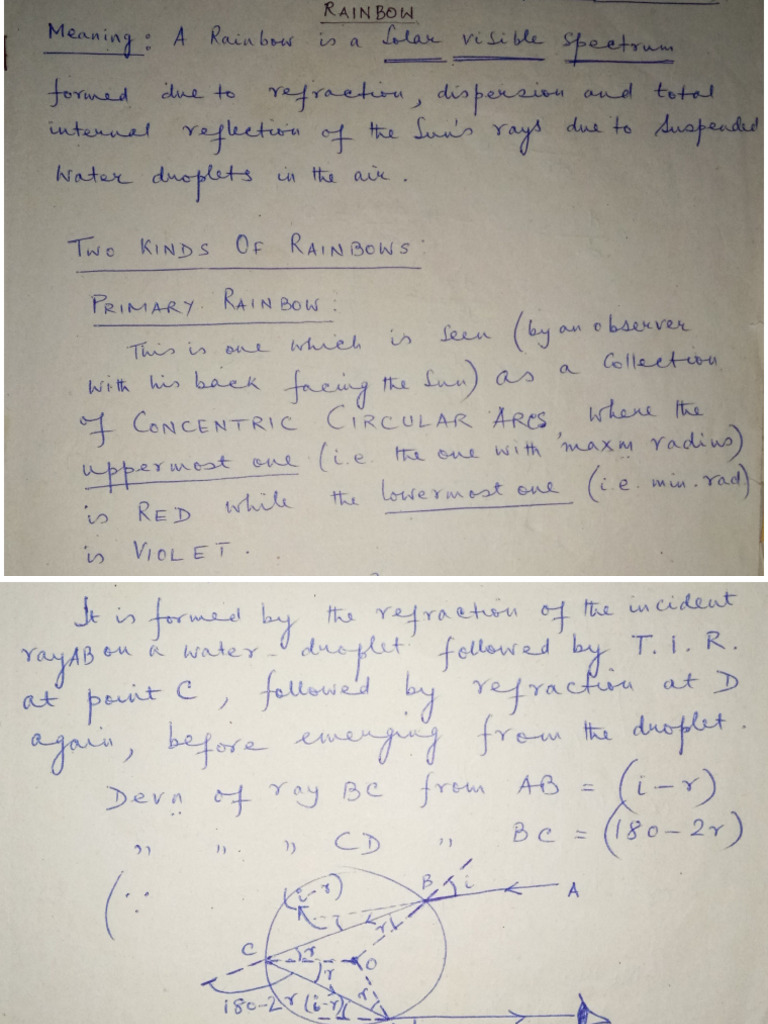 RAINBOW
Meaning: A Rainbow is a Solar visible spectrum
formed due to refraction, dispersion and total
internal reflection of the Sun's rays due to suspended
water droplets in the air.
TWO KINDS OF RAINBOWS:
PRIMARY RAINBOW:
This is one which is seen (by an observer
with his back facing the Sun) as a collection
of CONCENTRIC CIRCULAR ARCS, where the
uppermost one (i.e. the one with maxm radius)
is RED while the lowermost one (i.e. min. rad)
is VIOLET.
It is formed by the refraction of the incident
ray AB on a water-droplet followed by T.I.R.
at point C, followed by refraction at D
again, before emerging from the droplet.
Devn of ray BC from AB = (i-r)
,, ,, ,, CD ,, BC = (180-2r)
(∵
(i-r) B i A
r
C r O
r r
180-2r (i-r)